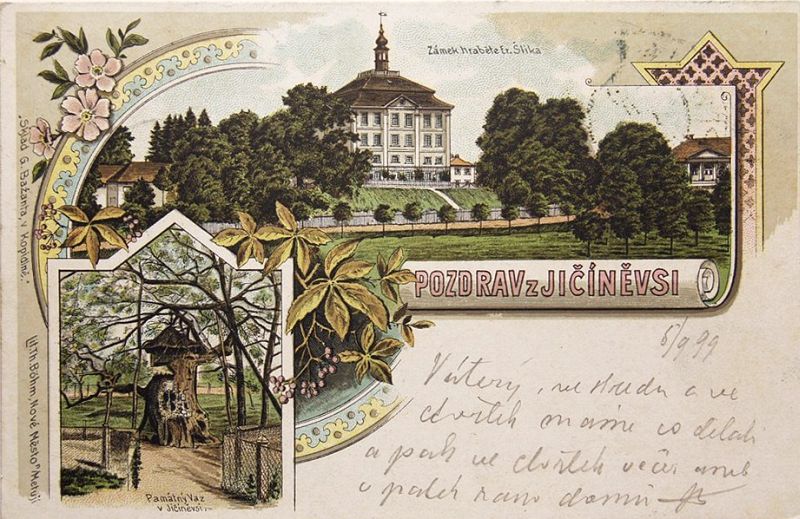 Zámek hraběte Er. Šlika
Sklad G. Bažanta, v Kopidlně.
POZDRAV z JIČÍNĚVSI
Lit. Th. Böhm, Nové Město n/Metují
Památný Vaz
v Jičíněvsi.
5/9 99
V úterý, ve středu a ve
čtvrtek máme co dělati
a pak ve čtvrtek večer aneb
v pátek ráno domů